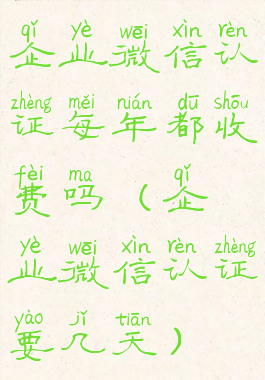 qǐ yè wēi xìn rèn
企业微信认
zhèng měi nián dū shōu
证每年都收
fèi ma qǐ
费吗（企
yè wēi xìn rèn zhèng
业微信认证
yào jǐ tiān
要几天）